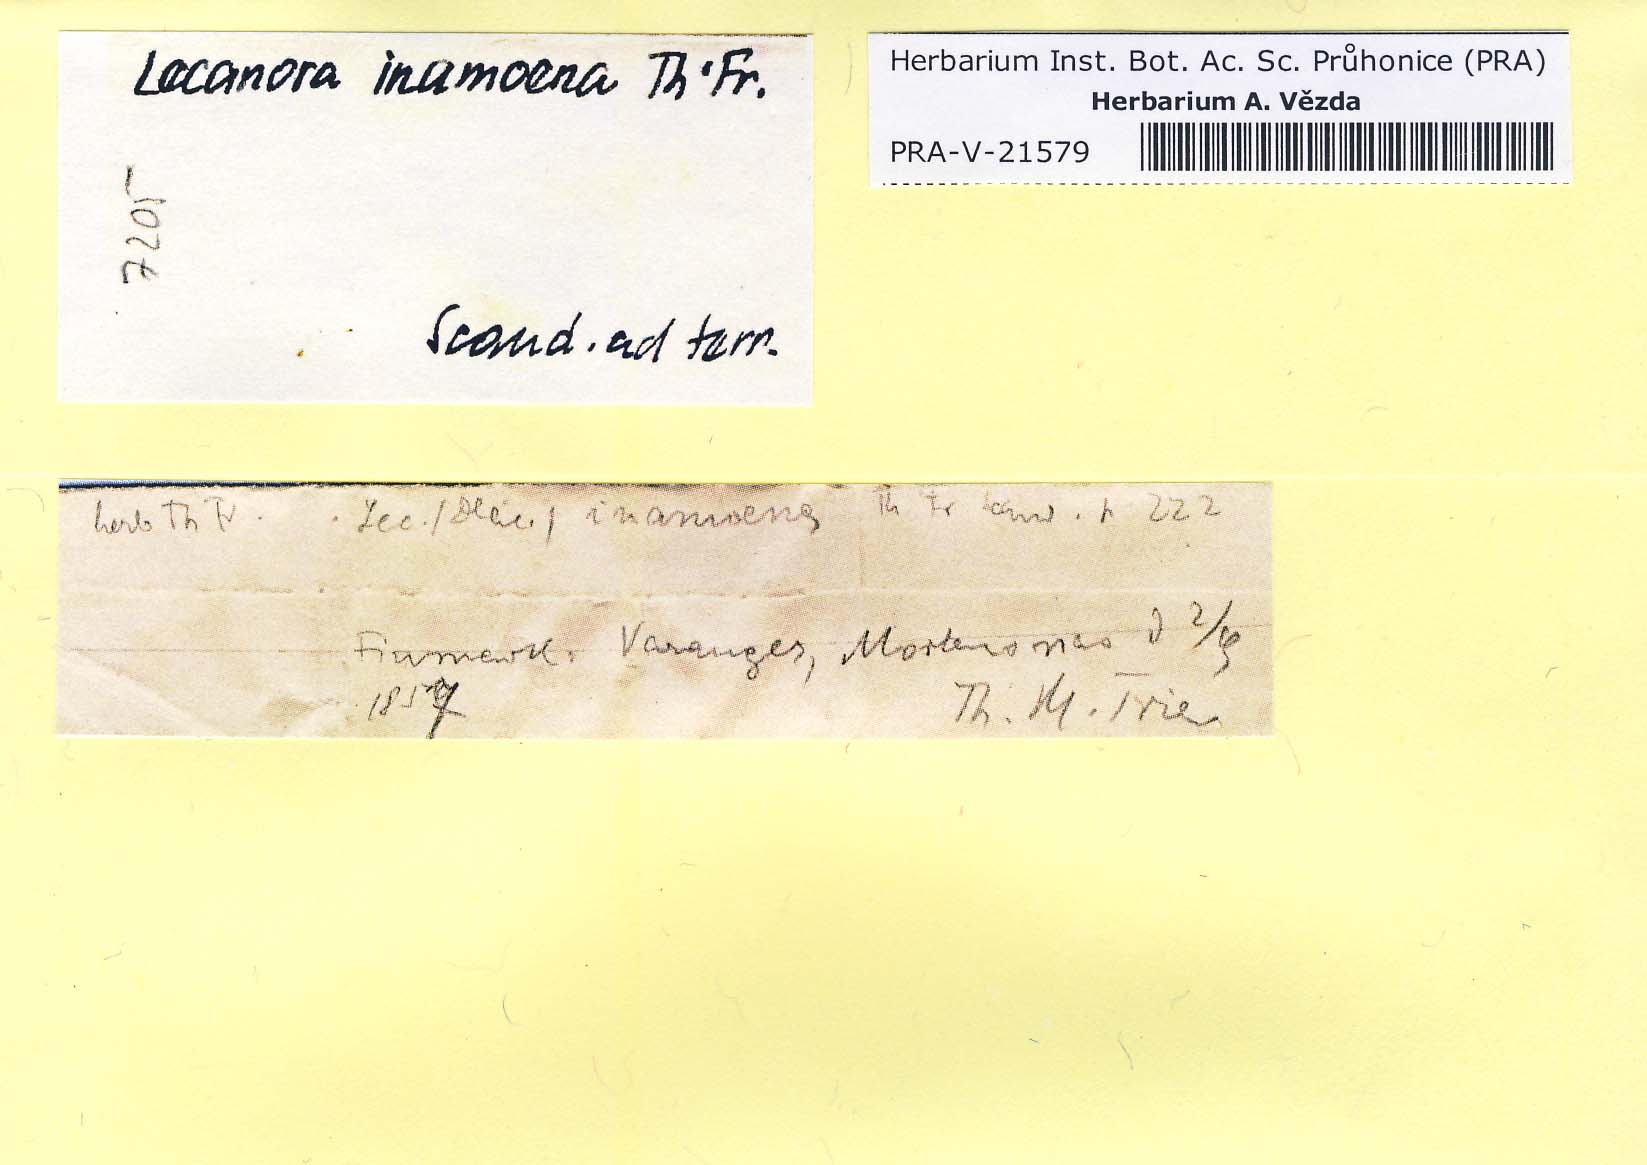 Lecanora inamoena Th. Fr.
7205
Scand. ad terr.
Herbarium Inst. Bot. Ac. Sc. Průhonice (PRA)
Herbarium A. Vězda
PRA-V-21579
herb Th Fr. Lec. inamoena Th Fr Scand. p 222
Finmark. Varanger,
1857 Th. M. Fries